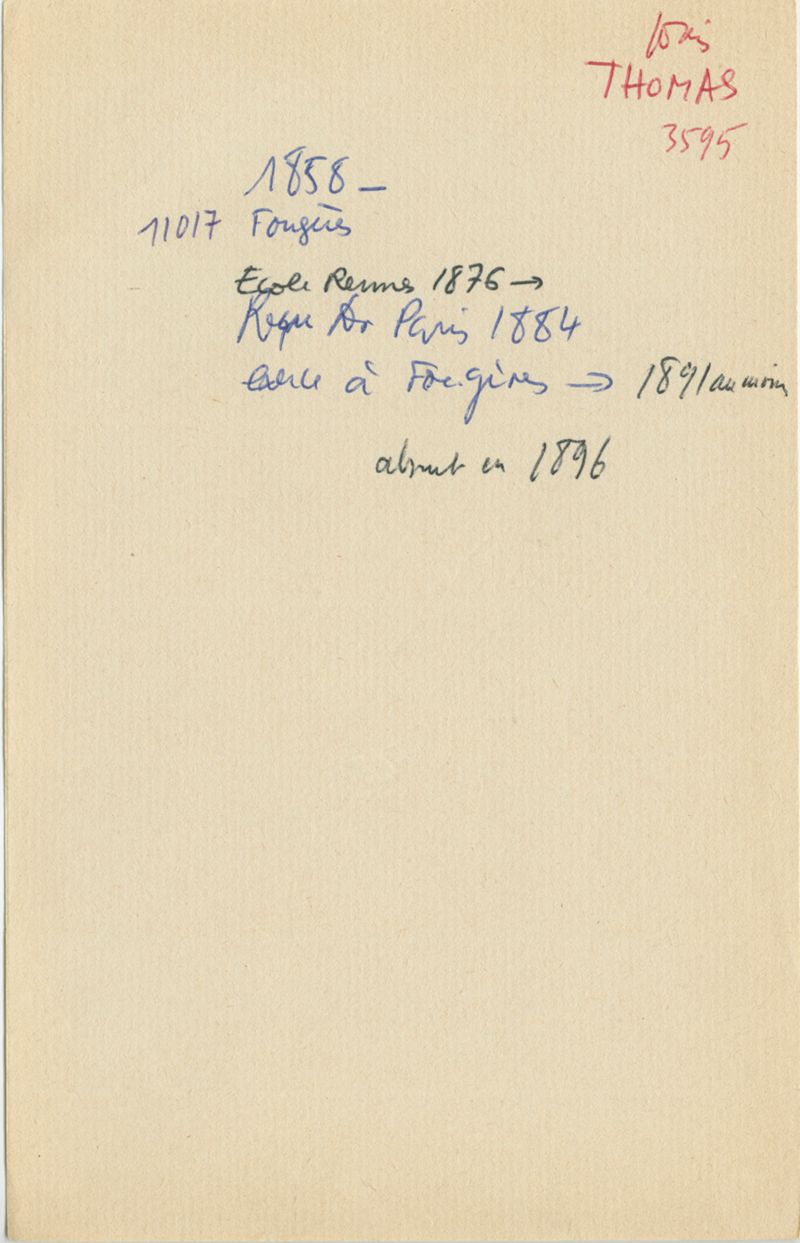 Louis
THOMAS
3595
1858 –
11017 Fougères
Ecole Rennes 1876 →
Reçu Dr Paris 1884
à Fougères → 1891 au moins
absent en 1896